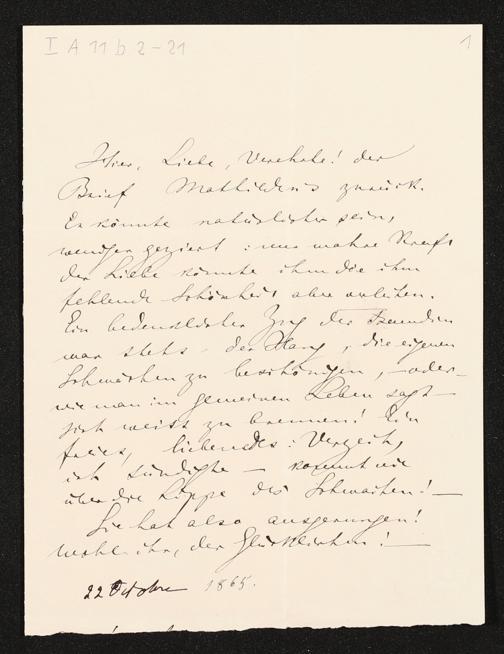 I A 11 b 2-21
1
Hier, Liebe, Verehrte! der
Brief Mathildens zurück.
Er könnte natürlicher sein,
weniger geziert: nur wahre Kraft
der Liebe könnte ihm die ihm
fehlende Schönheit aber verleihen.
Ein bedenklicher Zug der Freundin
war stets - der Hang, die eigenen
Schwächen zu beschönigen, - oder -
wie man im gemeinen Leben sagt -
sich weiss zu brennen! Ein
freies, liebendes: Verzeih,
ich sündigte - kommt nie
über die Lippe des Schwachen! -
Sie hat also ausgerungen!
wohl ihr, der Glücklichen! -
22 Octobre 1865.